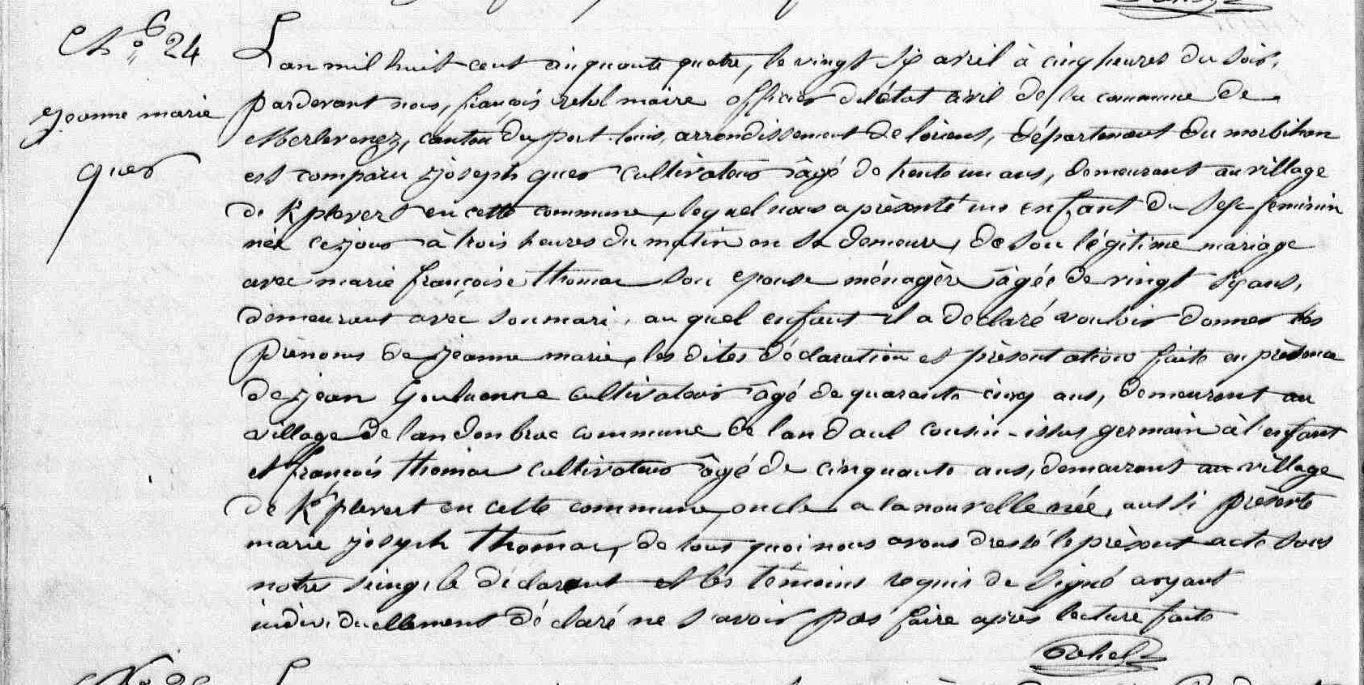 N.º 24
Jeanne marie
quer
L'an mil huit cent cinquante quatre, le vingt six avril à cinq heures du soir,
pardevant nous, françois maire officier de l'état civil de la commune de
Merlevenez, canton du port louis, arrondissement de lorient, département du morbihan
est comparu joseph quer cultivateur âgé de trente un ans, demeurant au village
de K/plevert en cette commune, lequel nous a présenté un enfant du sexe feminin
née ce jour à trois heures du matin en sa demeure, de son légitime mariage
avec marie françoise thomas son epouse ménagère âgée de vingt six ans,
demeurant avec son mari, au quel enfant il a declaré vouloir donner les
prénoms de jeanne marie, les dites déclaration et présentation faite en présence
de jean cultivateur âgé de quarante cinq ans, demeurant au
village de landonbrac commune de landaul cousin-issus germain à l'enfant
et françois thomas cultivateur âgé de cinquante ans, demeurant au village
de K/plevert en cette commune, oncle a la nouvelle née, aussi présente
marie joseph thomas, de tous quoi nous avons dressé le présent acte sous
notre seing, le déclarant et les témoins requis de signé avoyant
individuellement déclaré ne savoir pas faire après lecture faite